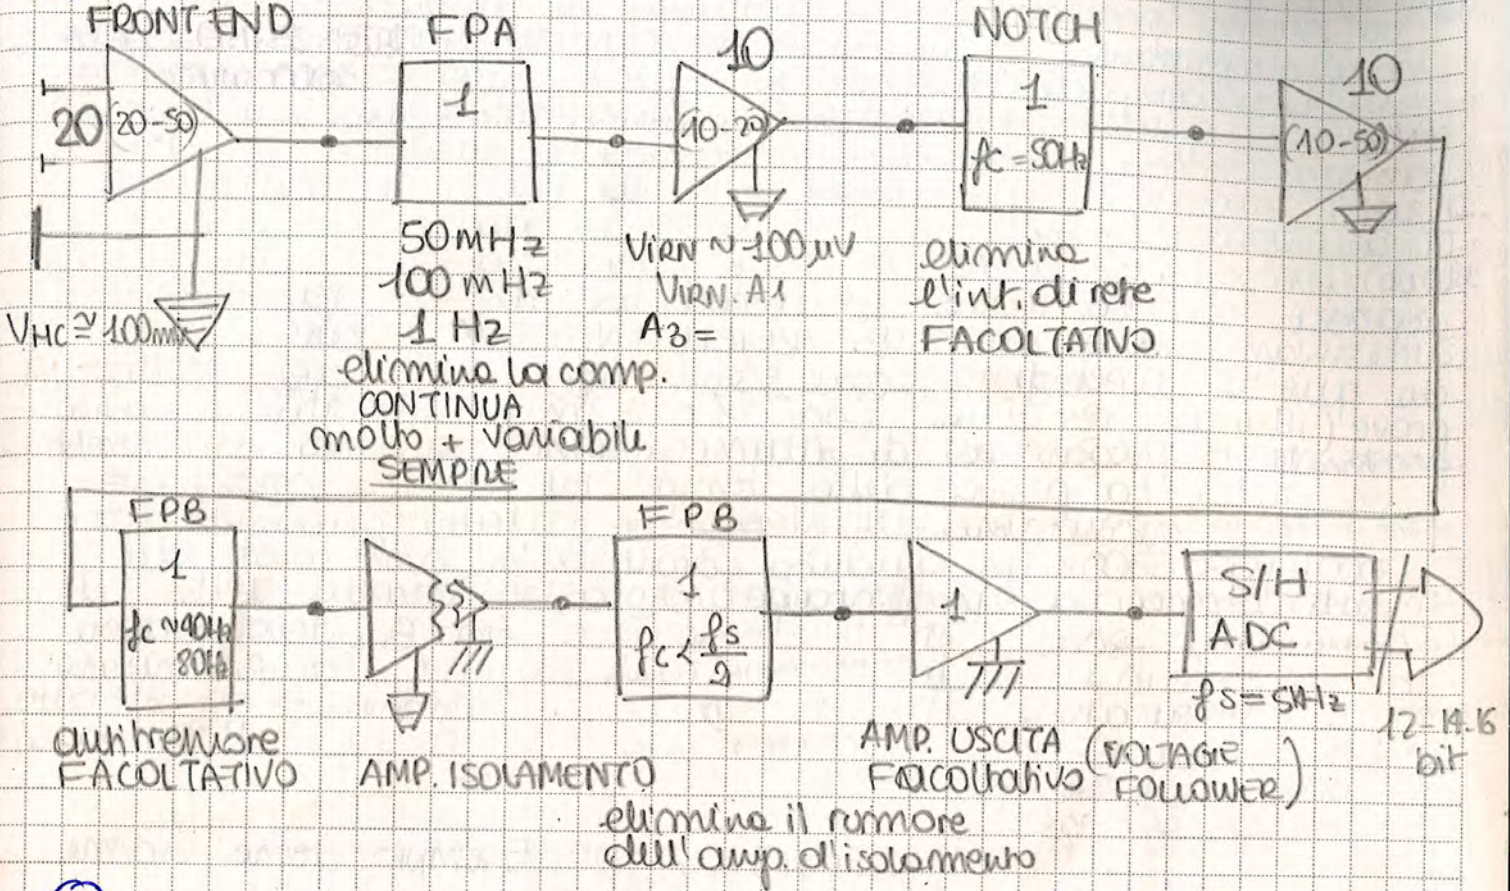 FRONT END
20
(20-50)
VHC ≅ 100m
FPA
1
50mHz
100mHz
1 Hz
elimina la comp.
CONTINUA
molto + variabile
SEMPRE
10
(10-20)
VIRN ~ 100μV
VIRN. A1
A3 =
NOTCH
1
fc = 50Hz
elimina
l'int. di rete
FACOLTATIVO
10
(10-50)
FPB
1
fc ~ 40Hz
80Hz
antitremore
FACOLTATIVO
AMP. ISOLAMENTO
FPB
1
fc < fs/2
elimina il rumore
dell'amp. d'isolamento
1
AMP. USCITA (VOLTAGE
Facoltativo FOLLOWER)
S/H
ADC
12-14-16
bit